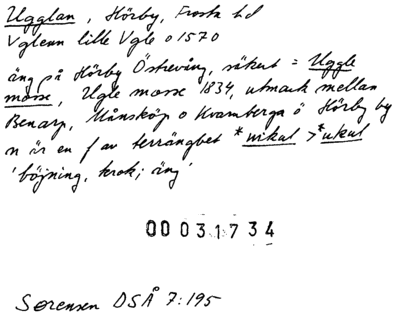 Ugglan, Hörby, Frosta hd
Vglenn lille Vgle o 1570
äng på Hörby Östrevång, säkert = Uggle
mosse, Ugle mosse 1834, utmark mellan
Benarp, Månsköp o Kvamberga ö Hörby by
n är en f av terrängbet *wikul > *ukul
'böjning, krok; äng'
00031734
Sørensen DSÅ 7:195